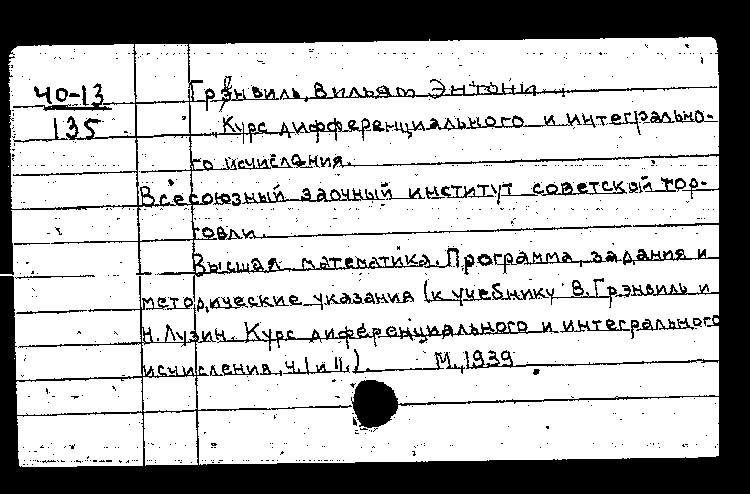 40-13
135
Грэнвиль, Вильям Энтони.
Курс дифференциального и интегрально-
го исчисления.
Всесоюзный заочный институт советской тор-
говли.
Высшая математика. Программа, задания и
методические указания (к учебнику В. Грэнвиль и
Н. Лузин. Курс диференциального и интегрального
исчисления, ч. I и II.). М., 1939